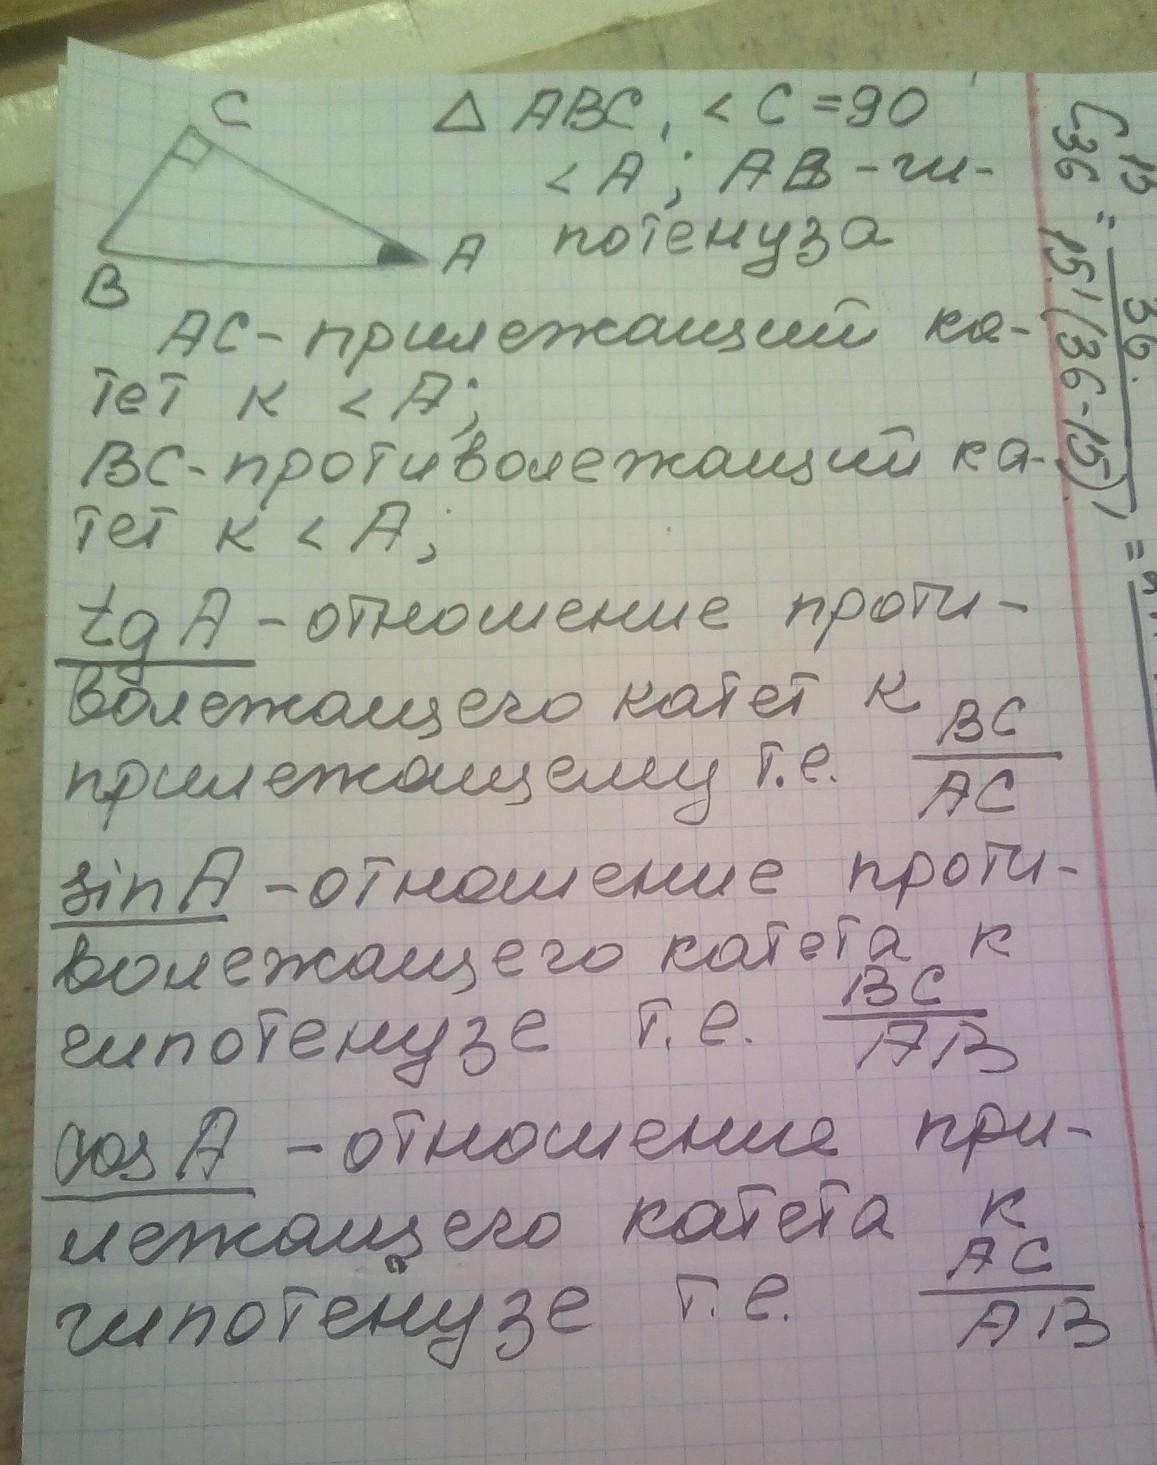 C
B
A
△ ABC, < C = 90
< A ; AB - ги-
потенуза
AC - прилежащий ка-
тет к < A;
BC - противолежащий ка-
тет к < A;
tg A - отношение проти-
волежащего катет к
прилежащему т.е. BC
AC
sin A - отношение проти-
волежащего катета к
гипотенузе т.е. BC
AB
cos A - отношение при-
лежащего катета к
гипотенузе т.е. AC
AB
C 15
36 =
36!
15! (36-15)! =